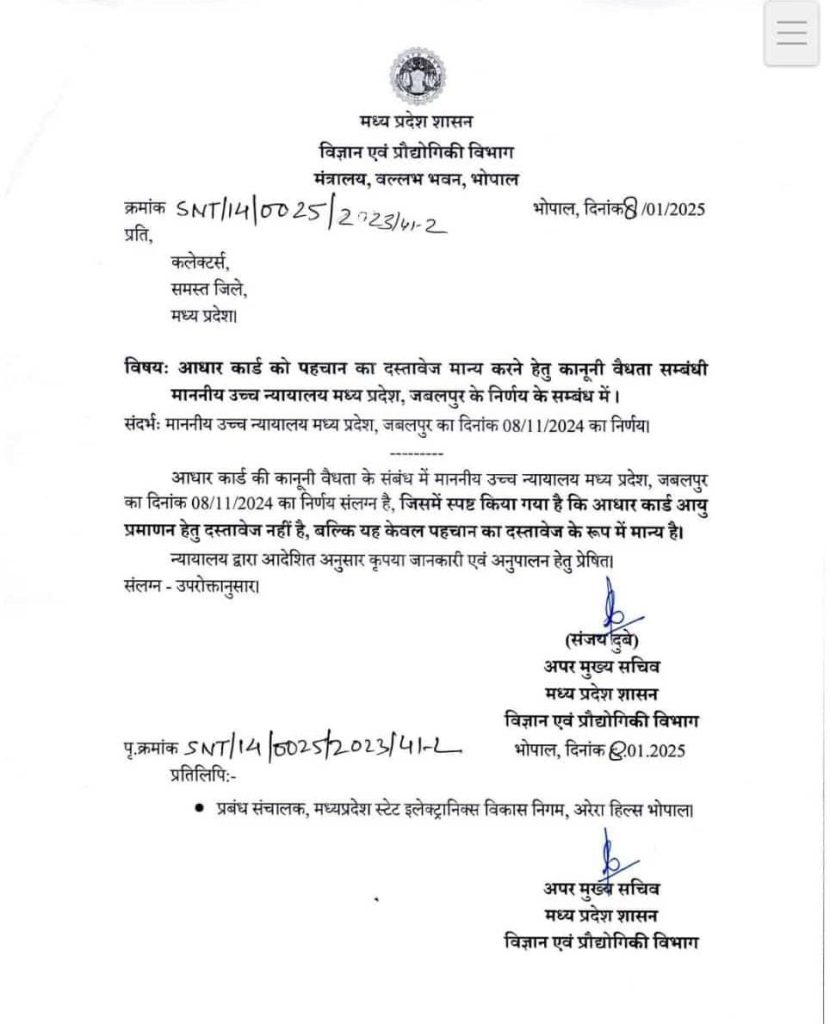 मध्य प्रदेश शासन
विज्ञान एवं प्रौद्योगिकी विभाग
मंत्रालय, वल्लभ भवन, भोपाल
क्रमांक SNT/14/0025/2023/41-2 भोपाल, दिनांक 8/01/2025
प्रति,
कलेक्टर्स,
समस्त जिले,
मध्य प्रदेश।
विषयः आधार कार्ड को पहचान का दस्तावेज मान्य करने हेतु कानूनी वैधता सम्बंधी
माननीय उच्च न्यायालय मध्य प्रदेश, जबलपुर के निर्णय के सम्बंध में।
संदर्भः माननीय उच्च न्यायालय मध्य प्रदेश, जबलपुर का दिनांक 08/11/2024 का निर्णय।
---------
आधार कार्ड की कानूनी वैधता के संबंध में माननीय उच्च न्यायालय मध्य प्रदेश, जबलपुर
का दिनांक 08/11/2024 का निर्णय संलग्न है, जिसमें स्पष्ट किया गया है कि आधार कार्ड आयु
प्रमाणन हेतु दस्तावेज नहीं है, बल्कि यह केवल पहचान का दस्तावेज के रूप में मान्य है।
न्यायालय द्वारा आदेशित अनुसार कृपया जानकारी एवं अनुपालन हेतु प्रेषित।
संलग्न - उपरोक्तानुसार।
(संजय दुबे)
अपर मुख्य सचिव
मध्य प्रदेश शासन
विज्ञान एवं प्रौद्योगिकी विभाग
पृ.क्रमांक SNT/14/0025/2023/41-2 भोपाल, दिनांक 8.01.2025
प्रतिलिपि:-
● प्रबंध संचालक, मध्यप्रदेश स्टेट इलेक्ट्रानिक्स विकास निगम, अरेरा हिल्स भोपाल।
अपर मुख्य सचिव
मध्य प्रदेश शासन
विज्ञान एवं प्रौद्योगिकी विभाग